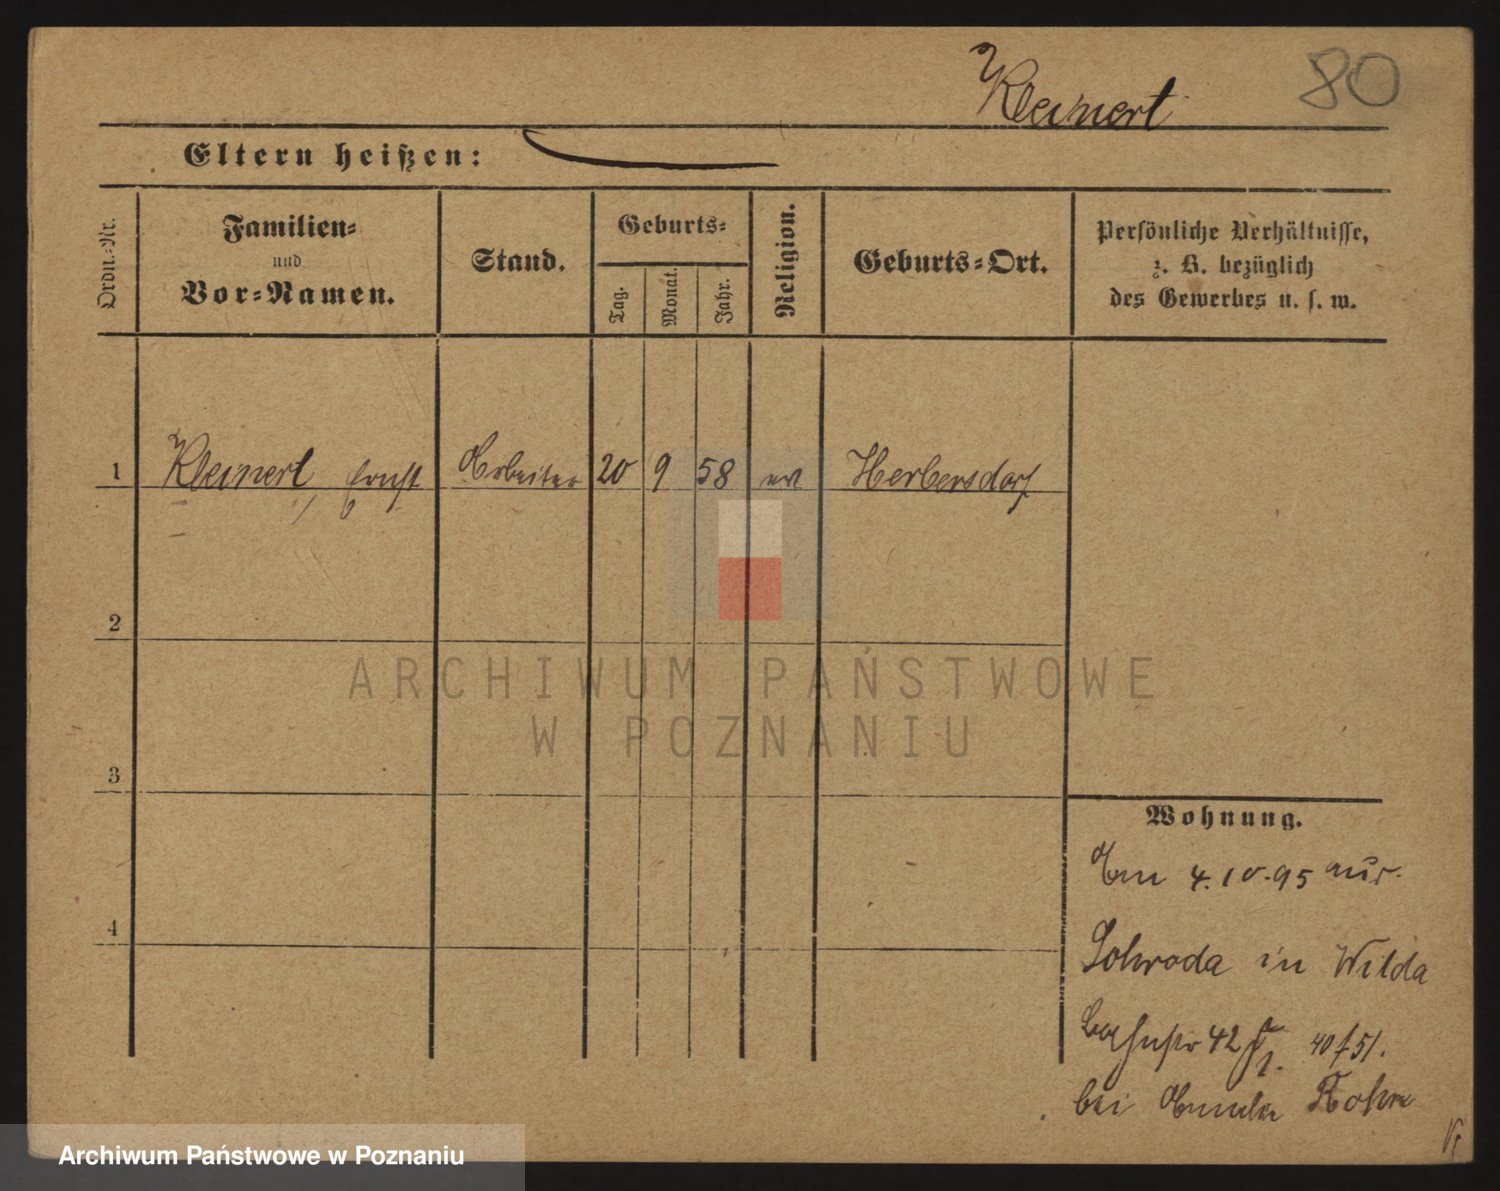 Kleinert
80
Eltern heißen:
Ordn.-Nr.
Familien-
und
Vor-Namen.
Stand.
Geburts-
Tag.
Monat.
Jahr.
Religion.
Geburts-Ort.
Persönliche Verhältnisse,
z. B. bezüglich
des Gewerbes u. s. w.
1 Kleinert, Ernst Arbeiter 20 9 58 ev Herbersdorf
2
ARCHIWUM PAŃSTWOWE
W POZNANIU
3
4
Wohnung.
Am 4.10.95 aus
Schroda in Wilda
42 40/51.
bei
Archiwum Państwowe w Poznaniu